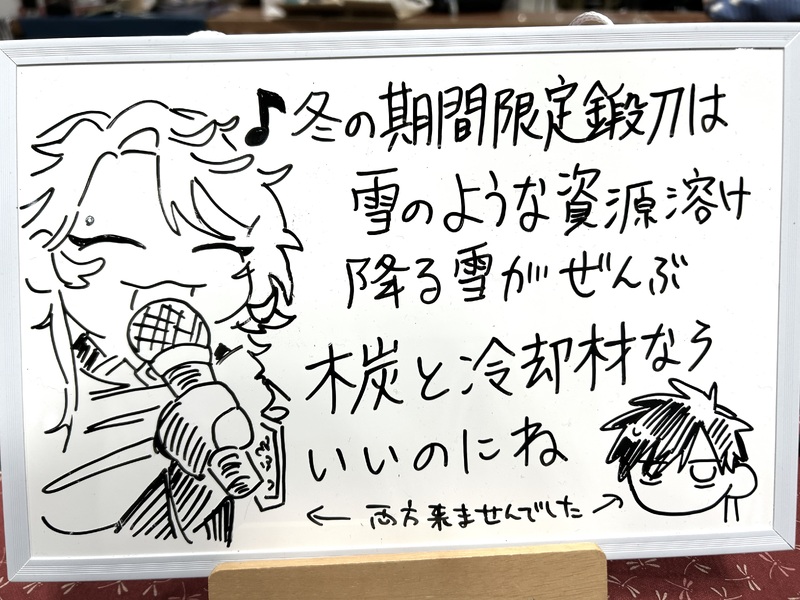 ♪冬の期間限定鍛刀は
雪のような資源溶け
降る雪がぜんぶ
木炭と冷却材なら
いいのにね
← 両方来ませんでした →